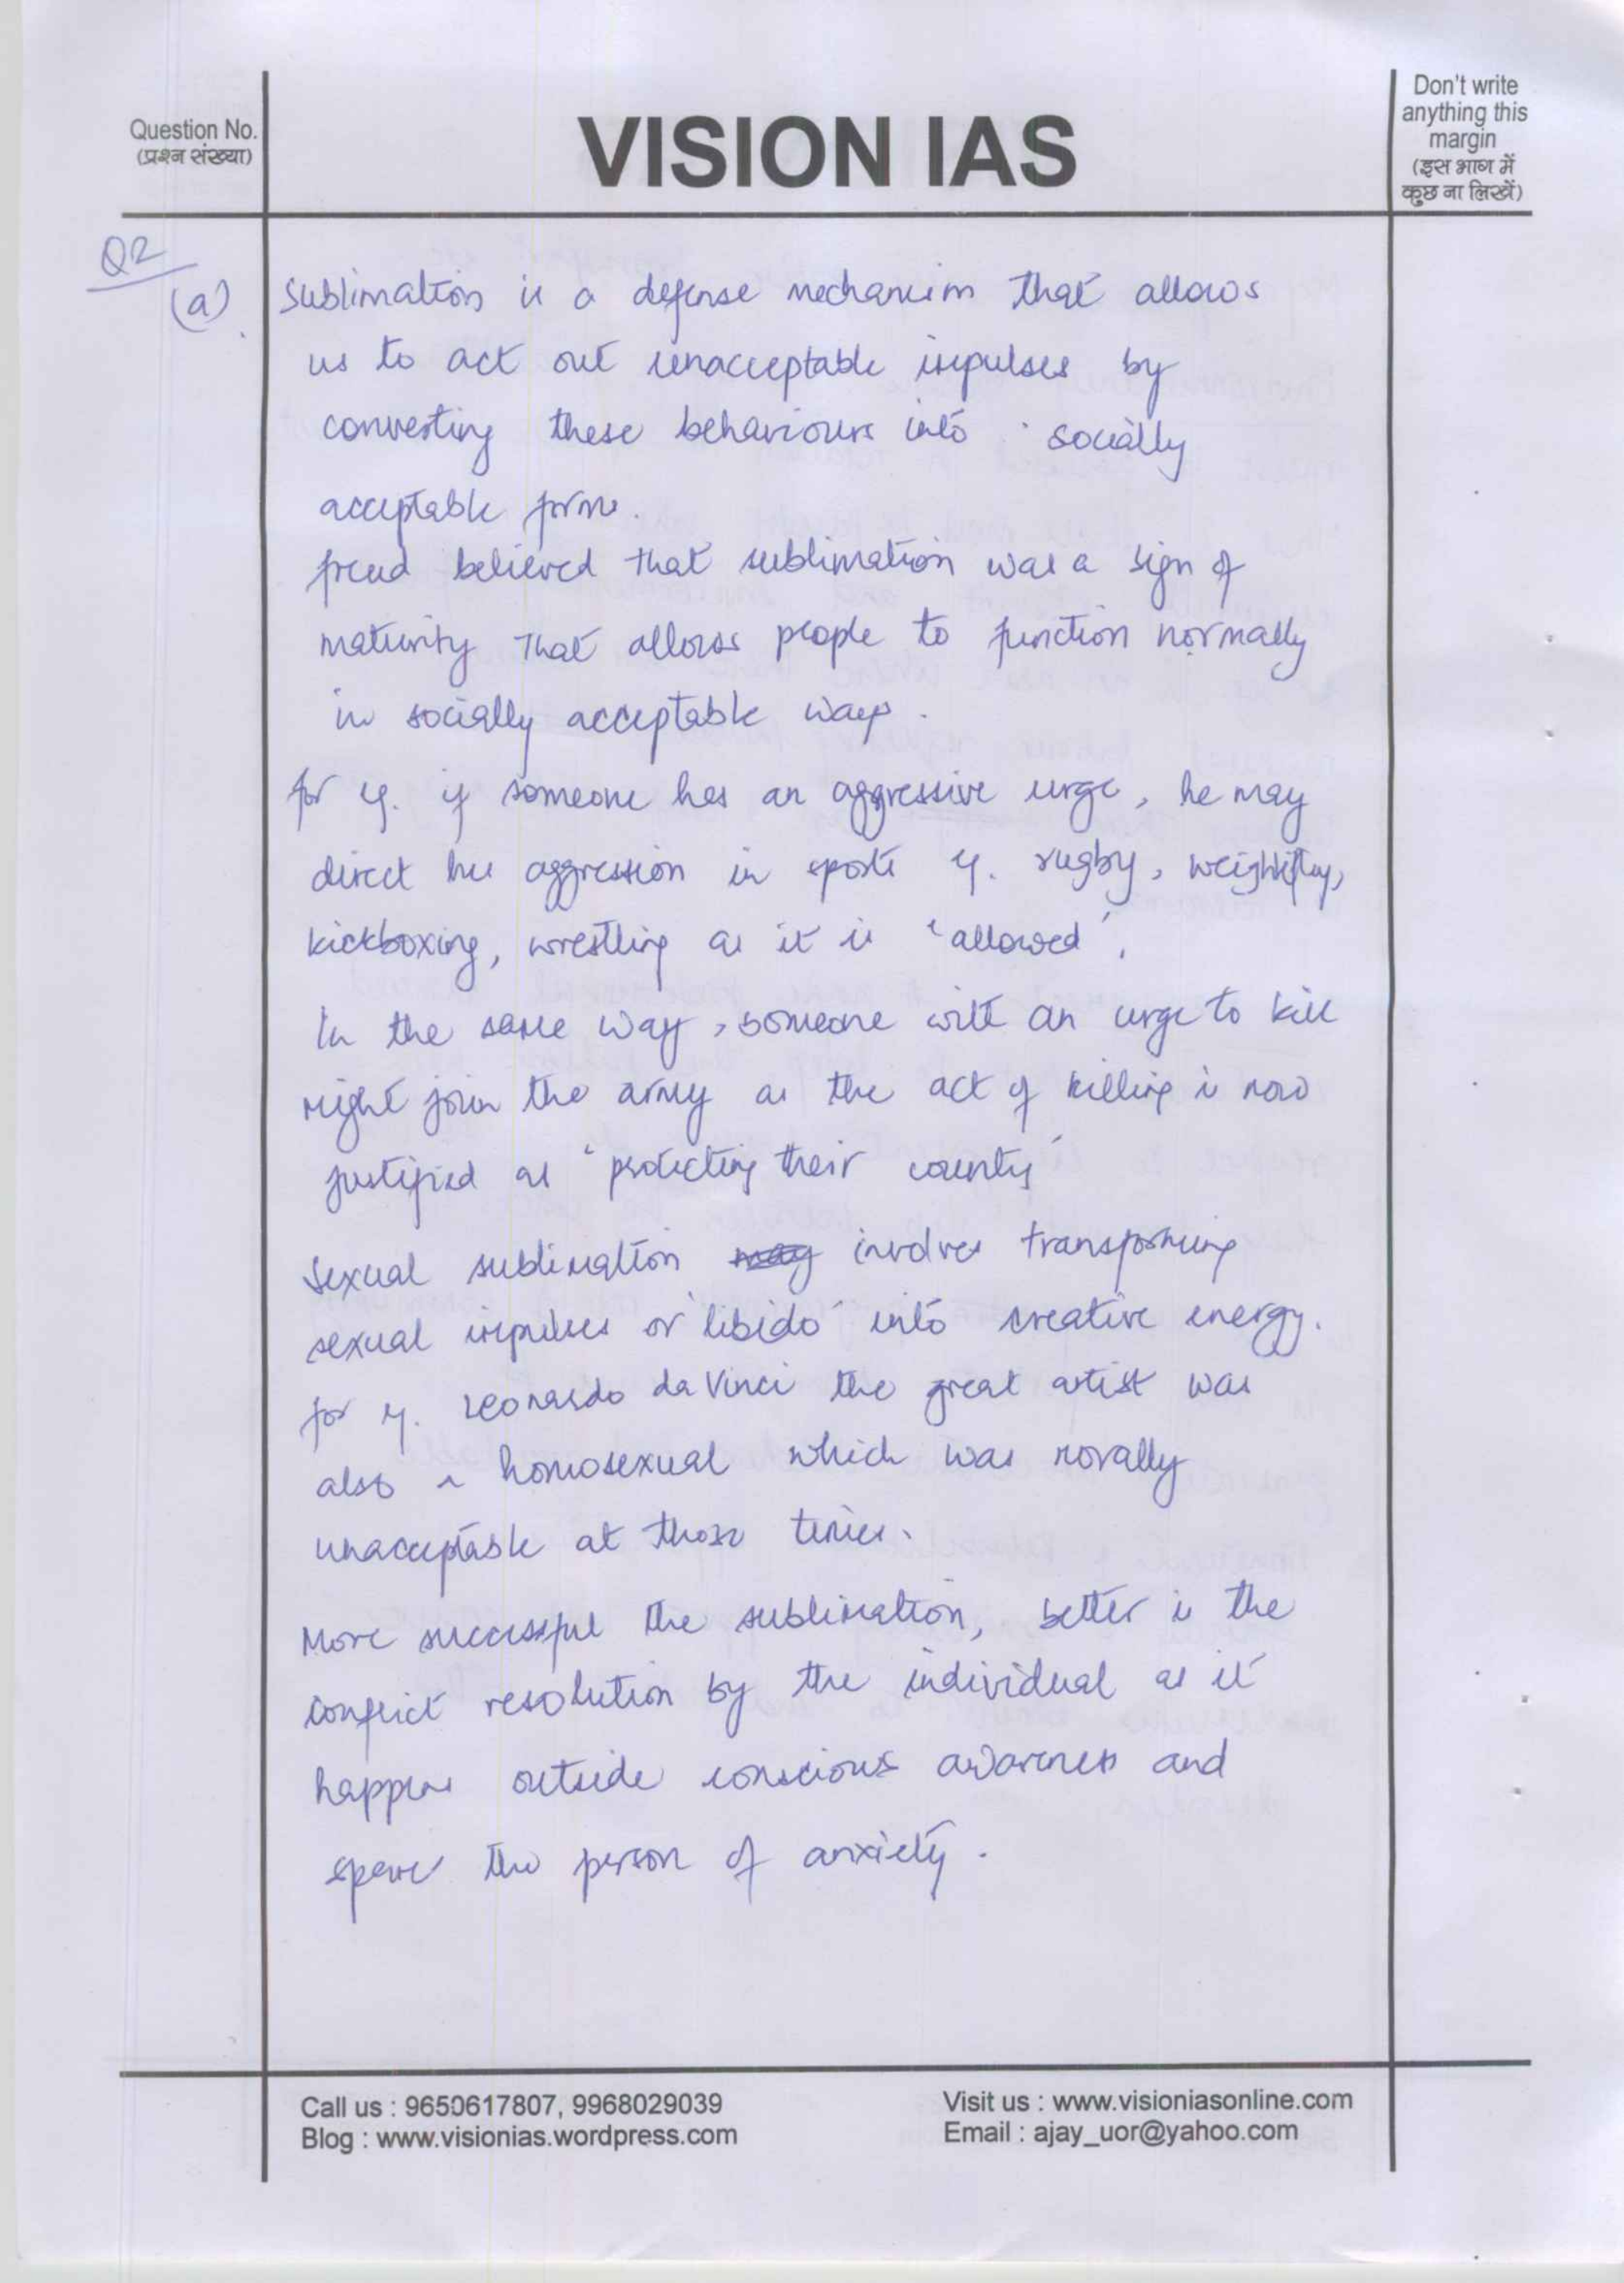 Question No.
(प्रश्न संख्या)
VISION IAS
Don't write
anything this
margin
(इस भाग में
कुछ ना लिखें)
Q2
(a) Sublimation is a defense mechanism that allows
us to act out unacceptable impulses by
converting these behaviours into socially
acceptable forms.
freud believed that sublimation was a sign of
maturity that allows people to function normally
in socially acceptable ways.
for eg. if someone has an aggressive urge, he may
direct his aggression in sports eg. rugby, weightlifting,
kickboxing, wrestling as it is 'allowed'.
In the same way, someone with an urge to kill
might join the army as the act of killing is now
justified as 'protecting their county'
Sexual sublimation may involves transforming
sexual impulses or 'libido' into creative energy.
for eg. Leonardo da Vinci the great artist was
also a homosexual which was morally
unacceptable at those times.
More successful the sublimation, better is the
conflict resolution by the individual as it
happens outside conscious awareness and
spares the person of anxiety.
Call us : 9650617807, 9968029039
Blog : www.visionias.wordpress.com
Visit us : www.visioniasonline.com
Email : ajay_uor@yahoo.com